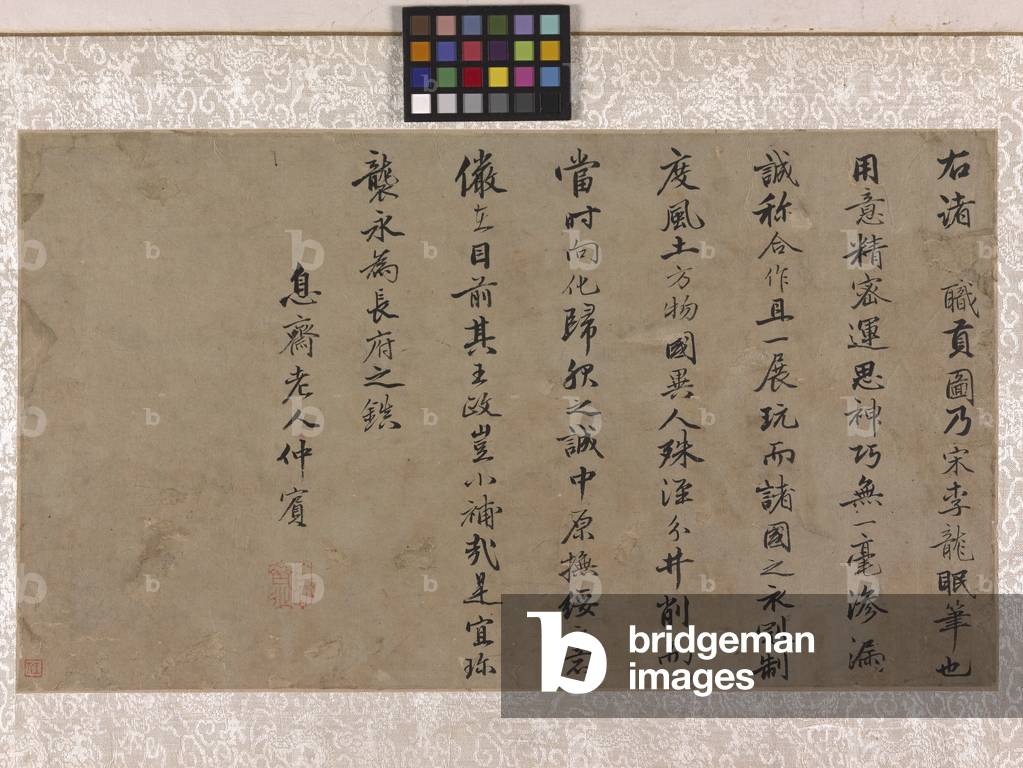 右諸 職貢圖乃宋李龍眠筆也
用意精密運思神巧無一毫滲漏
誠称合作且一展玩而諸國之衣制
度風土方物國異人殊涇分井削而
當时向化歸服之誠中原撫綏之意
儼立目前其王政豈小補哉是宜珎
襲永為長府之鎮
息齋老人仲賓
bridgeman
images